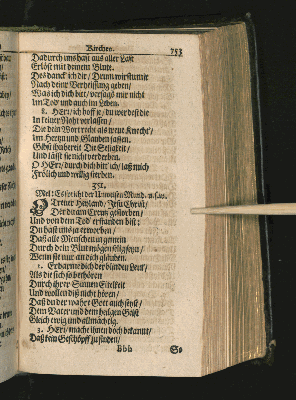 Kirchen. 753
Dadurch uns hast aus aller Last
Erlöst mit deinem Blute.
Des danck ich dir/ Drum wirstu mir
Nach deiner Verheissung geben/
Was ich dich bitt/ versag mir nicht
Im Tod und auch im Leben.
8. HErr/ ich hoff je/ du werdest die
In keiner Noht verlassen/
Die dein Wort recht als treue Knecht/
Im Hertzn und Glauben fassen.
Gibst ihn bereit Die Seligkeit/
Und lässt sie nicht verderben.
O HErr/ durch dich bitt ich/ laß mich
Frölich und willig sterben.
351.
Mel: Es spricht der Unweisen Mund. n. 8.
O Treuer Heyland/ JEsu Christ/
Der du am Creutz gestorben/
Und von dem Tod erstanden bist:
Du hast uns ja erworben/
Daß alle Menschen in gemein
Durch dein Blut mögen selig seyn/
Wenn sie nur an dich glauben.
2. Erbarme dich der blinden Leut/
Als die sich so bethören
Durch ihrer Sinnen Eitelkeit
Und wollen diß nicht hören/
Daß du der wahre Gott auch seyst/
Dem Vater und dem heilgen Geist
Gleich ewig und allmächtig.
3. HErr/ mache ihnen doch bekannt/
Daß kein Geschöpff zu finden/
Bbb So